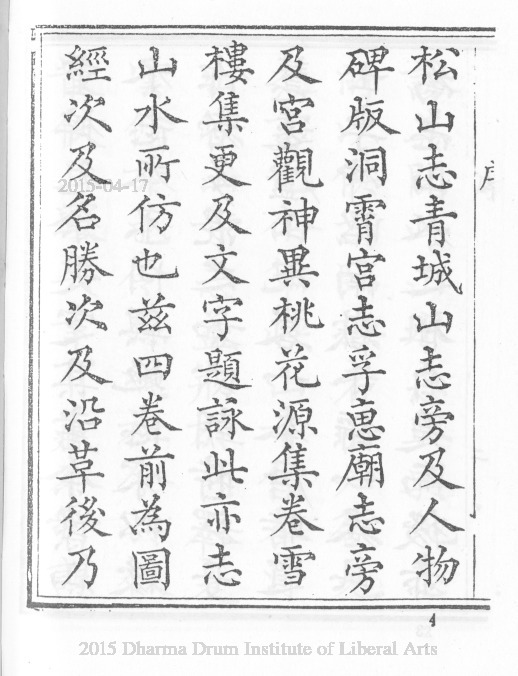 松山志青城山志旁及人物
碑版洞霄宮志孚惠廟志旁
及宮觀神異桃花源集卷雪
樓集更及文字題詠此亦志
山水所仿也茲四卷前為圖
經次及名勝次及沿革後乃
2015-04-17
4
2015 Dharma Drum Institute of Liberal Arts